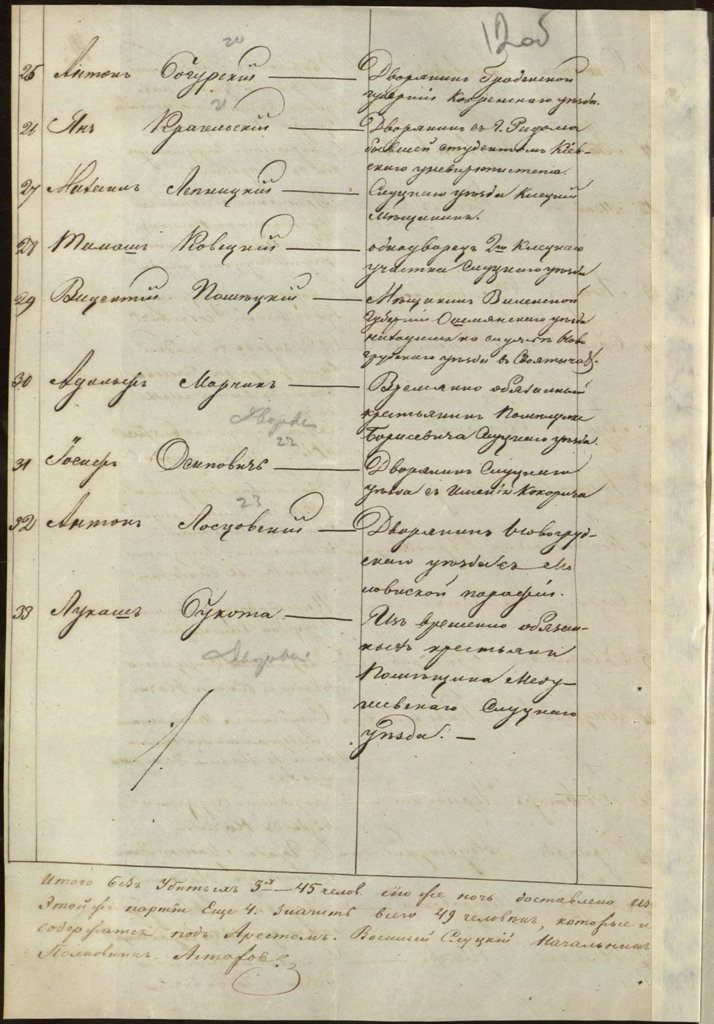 12об
20
25 Антонъ Бочурскій — Дворянинъ Гродненской
губерніи Кобринскаго уѣзда.
21
26 Янъ — Дворянинъ съ г. Радома
бывшей студентомъ Кіев-
скаго университета.
27 Лепницкій — Слуцкаго уѣзда Клецкій
Мѣщанинъ.
28 Тамашъ Ковецкій — однодворецъ 2го Клецкаго
участка Слуцкаго уѣзда
29 Вицентій — Мѣщанинъ Виленской
Губерніи Ошмянскаго уѣзда
находился по случаю Ново
грудскаго уѣзда в
30 Адольфъ Марчикъ — Временно обязанный
крестьянинъ Помещика
Борисевича Слуцкаго уѣзда.
22
31 Іосифъ Осиповичъ — Дворянинъ Слуцкаго
уѣзда съ имѣнія Кокорича
23
32 Антонъ Лосцовскій — Дворянинъ Новогруд-
скаго уѣзда съ
парафіи.
33 Лукашъ Сукота — Изъ временно обязан-
ныхъ крестьянъ
Помѣщика
Слуцкаго
уѣзда. —
Итого безъ Убитыхъ 3х — 45 челов. сію же ночь доставлено из
Этой же партіи Еще 4. Значитъ всего 49 человекъ, которые и
содержатся подъ Арестомъ. Военный Слуцкій Начальникъ
Полковникъ Астафовъ